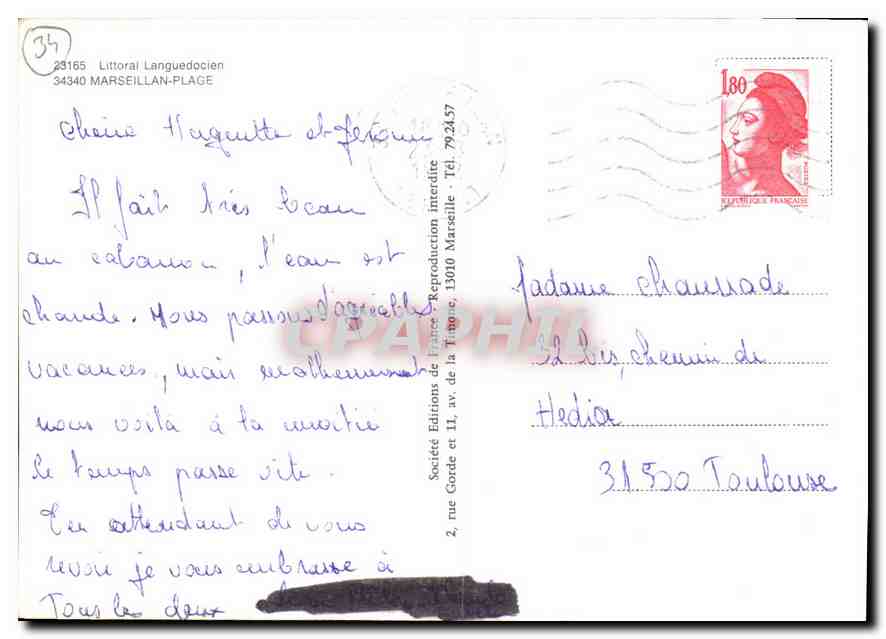 34
23165 Littoral Languedocien
34340 MARSEILLAN-PLAGE
Chère Huguette et Jérome
Il fait très beau
au cabanon, l'eau est
chaude. Nous passons d'agréables
vacances, mais malheureusement
nous voilà à la moitié
le temps passe vite.
En attendant de vous
revoir je vous embrasse à
Tous les deux
Société Editions de France · Reproduction interdite
2, rue Gorde et 11, av. de la Timone, 13010 Marseille · Tél. 79.24.57
1,80
REPUBLIQUE FRANÇAISE
Madame Chaussade
32 bis, chemin de
Hedia
31500 Toulouse
CPAPHIL